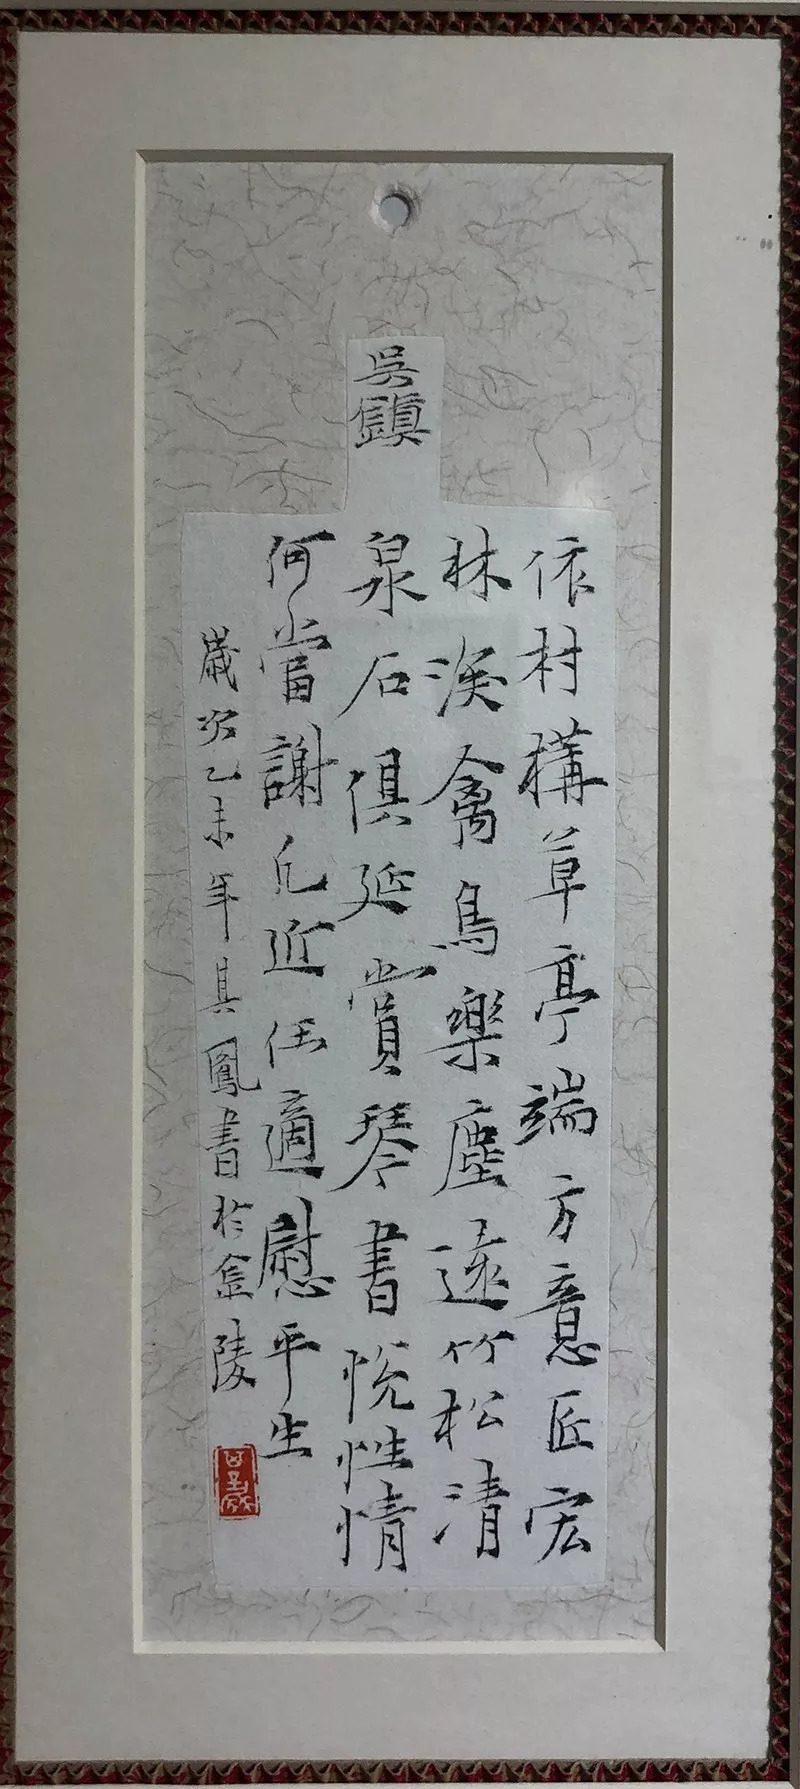 吳鎮
依村構草亭端方意匠宏
林深禽鳥樂塵遠竹松清
泉石俱延賞琴書悅性情
何當謝凡近任適慰平生
歲次乙未年鳳書於金陵